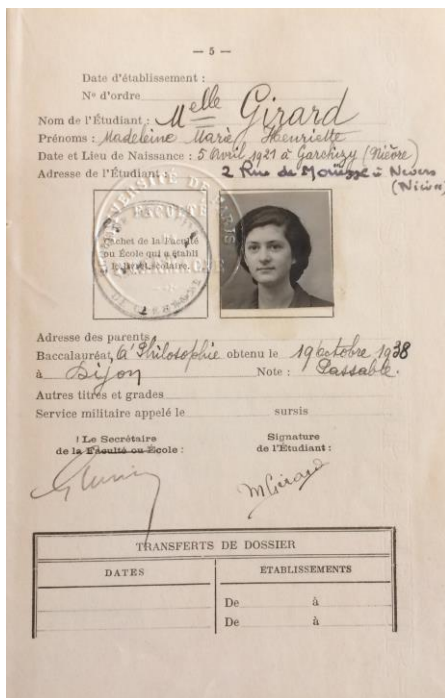 — 5 —
Date d'établissement :
N° d'ordre
Nom de l'Étudiant : Melle Girard
Prénoms : Madeleine Marie Henriette
Date et Lieu de Naissance : 5 Avril 1921 à Garchizy (Nièvre)
Adresse de l'Étudiant : 2 Rue de Mouësse à Nevers
(Nièvre)
UNIVERSITÉ DE PARIS
FACULTÉ
Cachet de la Faculté
ou École qui a établi
le livret scolaire.
Adresse des parents
Baccalauréat, A' Philosophie obtenu le 19 octobre 1938
à Dijon Note : Passable.
Autres titres et grades
Service militaire appelé le sursis
! Le Secrétaire
de la Faculté ou École :
Signature
de l'Étudiant :
MGirard
TRANSFERTS DE DOSSIER
DATES ETABLISSEMENTS
De à
De à